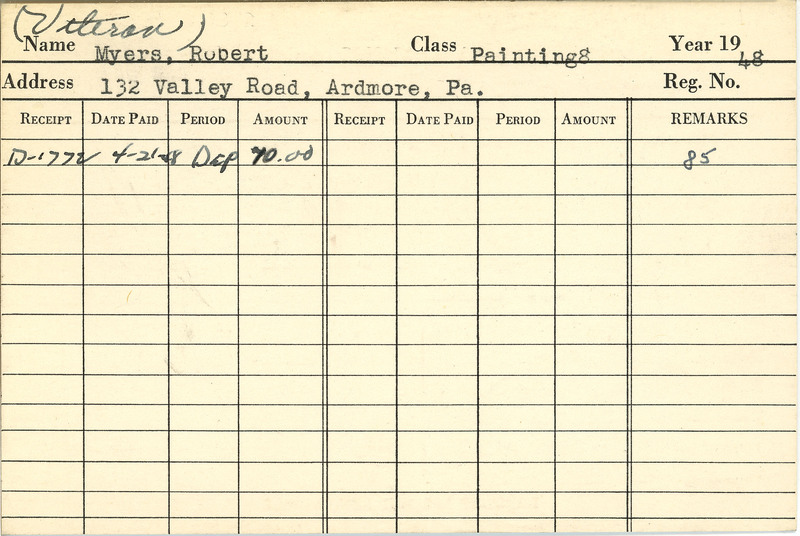 (Veteran)
Name Myers, Robert Class Painting8 Year 1948
Address 132 Valley Road, Ardmore, Pa. Reg. No.
RECEIPT DATE PAID PERIOD AMOUNT RECEIPT DATE PAID PERIOD AMOUNT REMARKS
D-1772 4-21-48 Dep 70.00 85